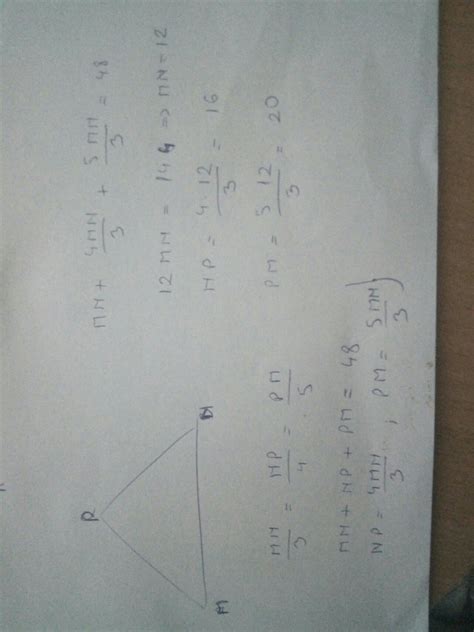 P
M N
MN/3 = NP/4 = PM/5
MN + NP + PM = 48
NP = 4MN/3 ; PM = 5MN/3 )
MN + 4MN/3 + 5MN/3 = 48
12 MN = 144 => MN = 12
NP = 4·12/3 = 16
PM = 5·12/3 = 20